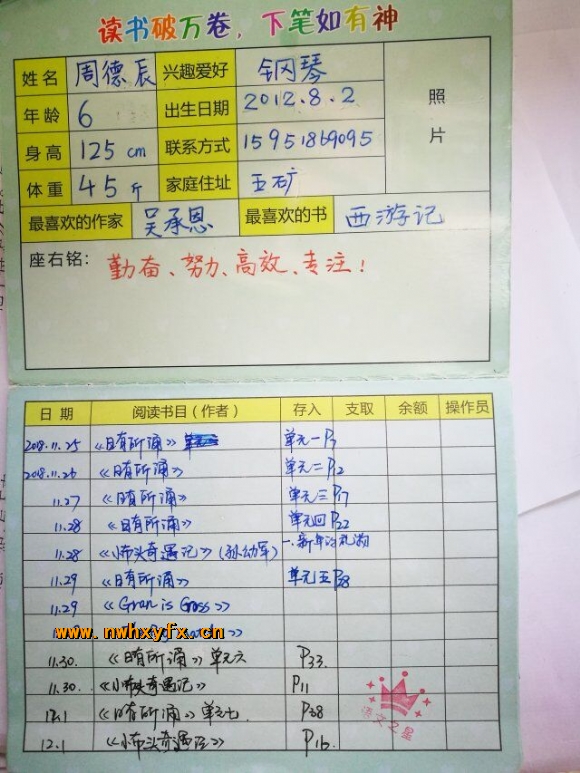 读书破万卷，下笔如有神
姓名 周德辰 兴趣爱好 钢琴 照片
年龄 6 出生日期 2012.8.2
身高 125 cm 联系方式 15951869095
体重 45斤 家庭住址 五矿
最喜欢的作家 吴承恩 最喜欢的书 西游记
座右铭： 勤奋、努力、高效、专注！
日期 阅读书目（作者） 存入 支取 余额 操作员
2018.11.25 《日有所诵》 单元一P7
2018.11.26 《日有所诵》 单元二P12
11.27 《日有所诵》 单元三P17
11.28 《日有所诵》 单元四P22
11.28 《小布头奇遇记》（孙幼军） 一.新年的礼物
11.29 《日有所诵》 单元五P28
11.29 《Gran is Cross》
www.nwhxyfx.cn
11.30. 《日有所诵》单元六 P33.
11.30. 《小布头奇遇记》 P11
12.1 《日有所诵》单元七. P38
12.1 《小布头奇遇记》 P16.
语文之星